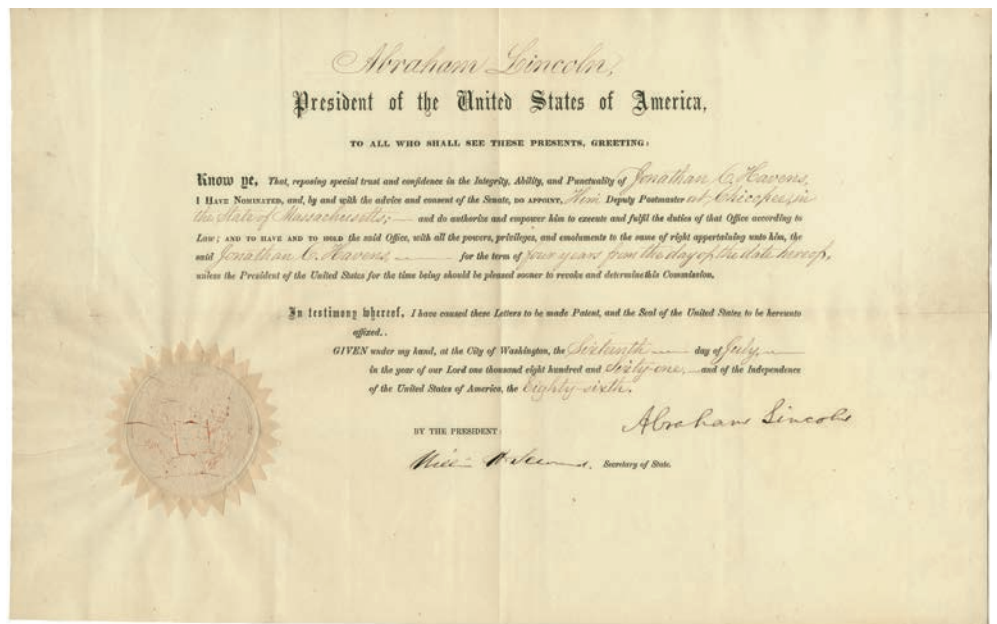 Abraham Lincoln,
President of the United States of America,
TO ALL WHO SHALL SEE THESE PRESENTS, GREETING:
Know ye, That, reposing special trust and confidence in the Integrity, Ability, and Punctuality of Jonathan C. Havens,
I HAVE NOMINATED, and, by and with the advice and consent of the Senate, DO APPOINT, Him Deputy Postmaster at Chicopee, in
the State of Massachusetts; and do authorize and empower him to execute and fulfil the duties of that Office according to
Law; AND TO HAVE AND TO HOLD the said Office, with all the powers, privileges, and emoluments to the same of right appertaining unto him, the
said Jonathan C. Havens, for the term of four years from the day of the date hereof,
unless the President of the United States for the time being should be pleased sooner to revoke and determine this Commission.
In testimony whereof, I have caused these Letters to be made Patent, and the Seal of the United States to be hereunto
affixed..
GIVEN under my hand, at the City of Washington, the Sixteenth day of July,
in the year of our Lord one thousand eight hundred and Sixty-one, and of the Independence
of the United States of America, the Eighty-sixth.
Abraham Lincoln
BY THE PRESIDENT:
William H Seward. Secretary of State.